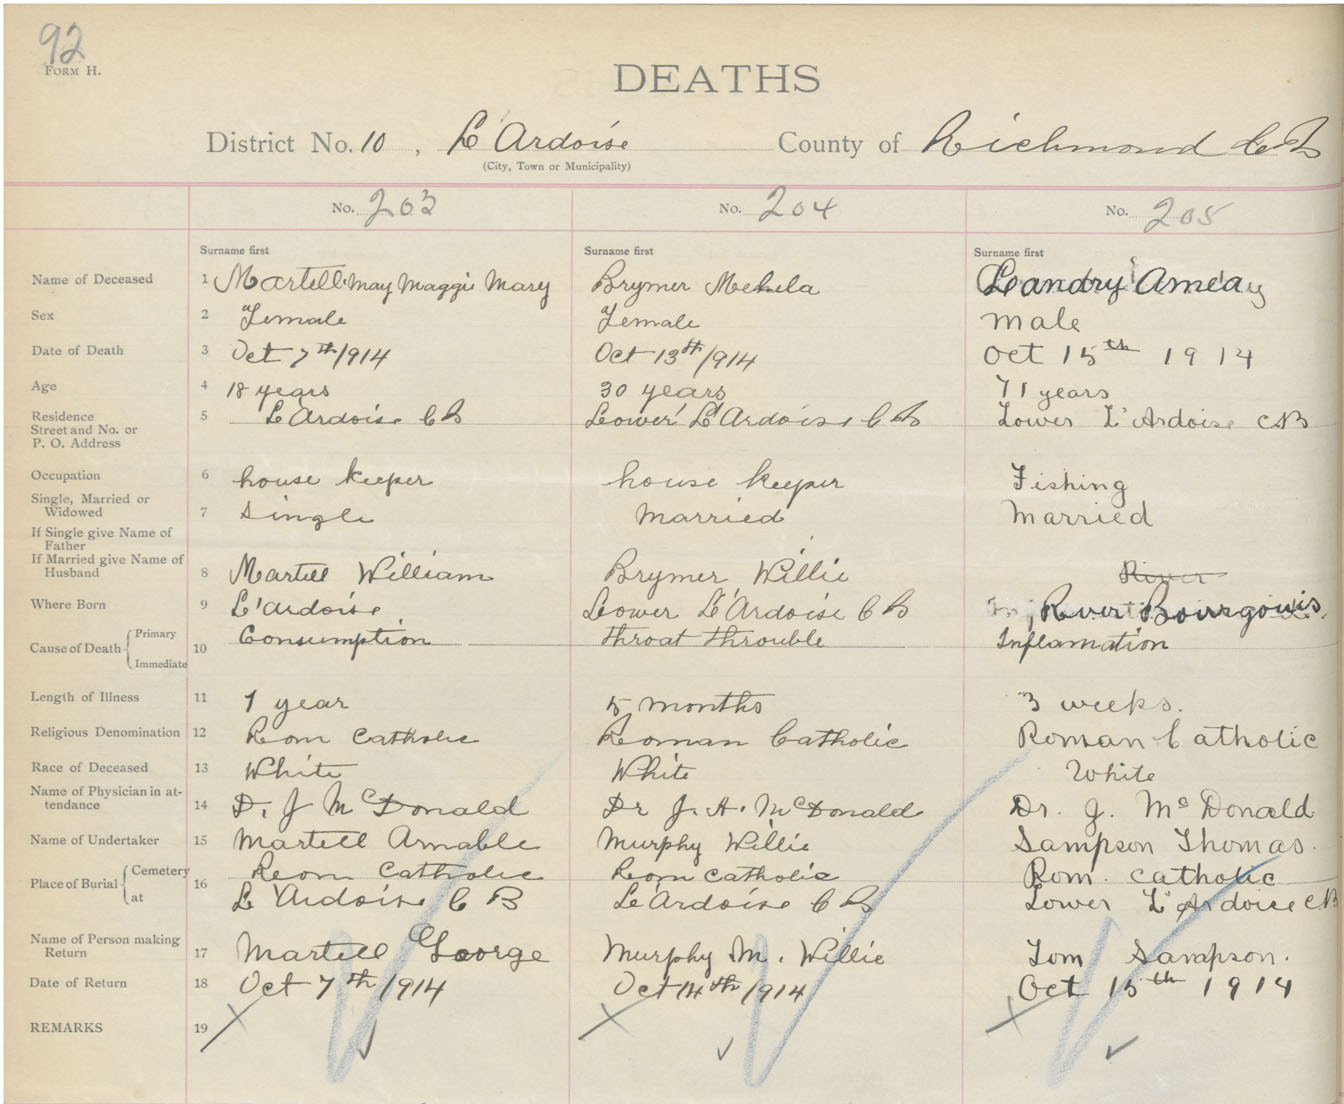 92
FORM H.
DEATHS
District No. 10, L'Ardoise County of Richmond C B
(City, Town or Municipality)
No. 203 No. 204 No. 205
Surname first Surname first Surname first
Name of Deceased 1 Martell May Maggie Mary Brymer Mehela Landry Amedy
Sex 2 Female Female male
Date of Death 3 Oct 7th/1914 Oct 13th/1914 Oct 15th 1914
Age 4 18 years 30 years 71 years
Residence
Street and No. or 5 L'Ardoise C B Lower L'Ardoise C B Lower L'Ardoise C B
P. O. Address
Occupation 6 house keeper house keeper Fishing
Single, Married or
Widowed 7 Single Married Married
If Single give Name of
Father
If Married give Name of
Husband 8 Martell William Brymer Willie River
Where Born 9 L'ardoise Lower L'Ardoise C B River Bourgouis.
Cause of Death { Primary Immediate 10 Consumption throat throuble Inflamation
Length of Illness 11 1 year 5 months 3 weeks.
Religious Denomination 12 Rom Catholic Roman Catholic Roman Catholic
Race of Deceased 13 White White White
Name of Physician in at-
tendance 14 D. J McDonald Dr J. A. McDonald Dr. J. Mc Donald
Name of Undertaker 15 Martell Arnable Murphy Willie Sampson Thomas.
Place of Burial { Cemetery 16 Rom Catholic Rom Catholic Rom. Catholic
at L'Ardoise C B L'Ardoise C B Lower L'Ardoise C B
Name of Person making
Return 17 Martell George Murphy M. Willie Tom Sampson.
Date of Return 18 Oct 7th/1914 Oct 14th/1914 Oct 15th 1914
REMARKS 19